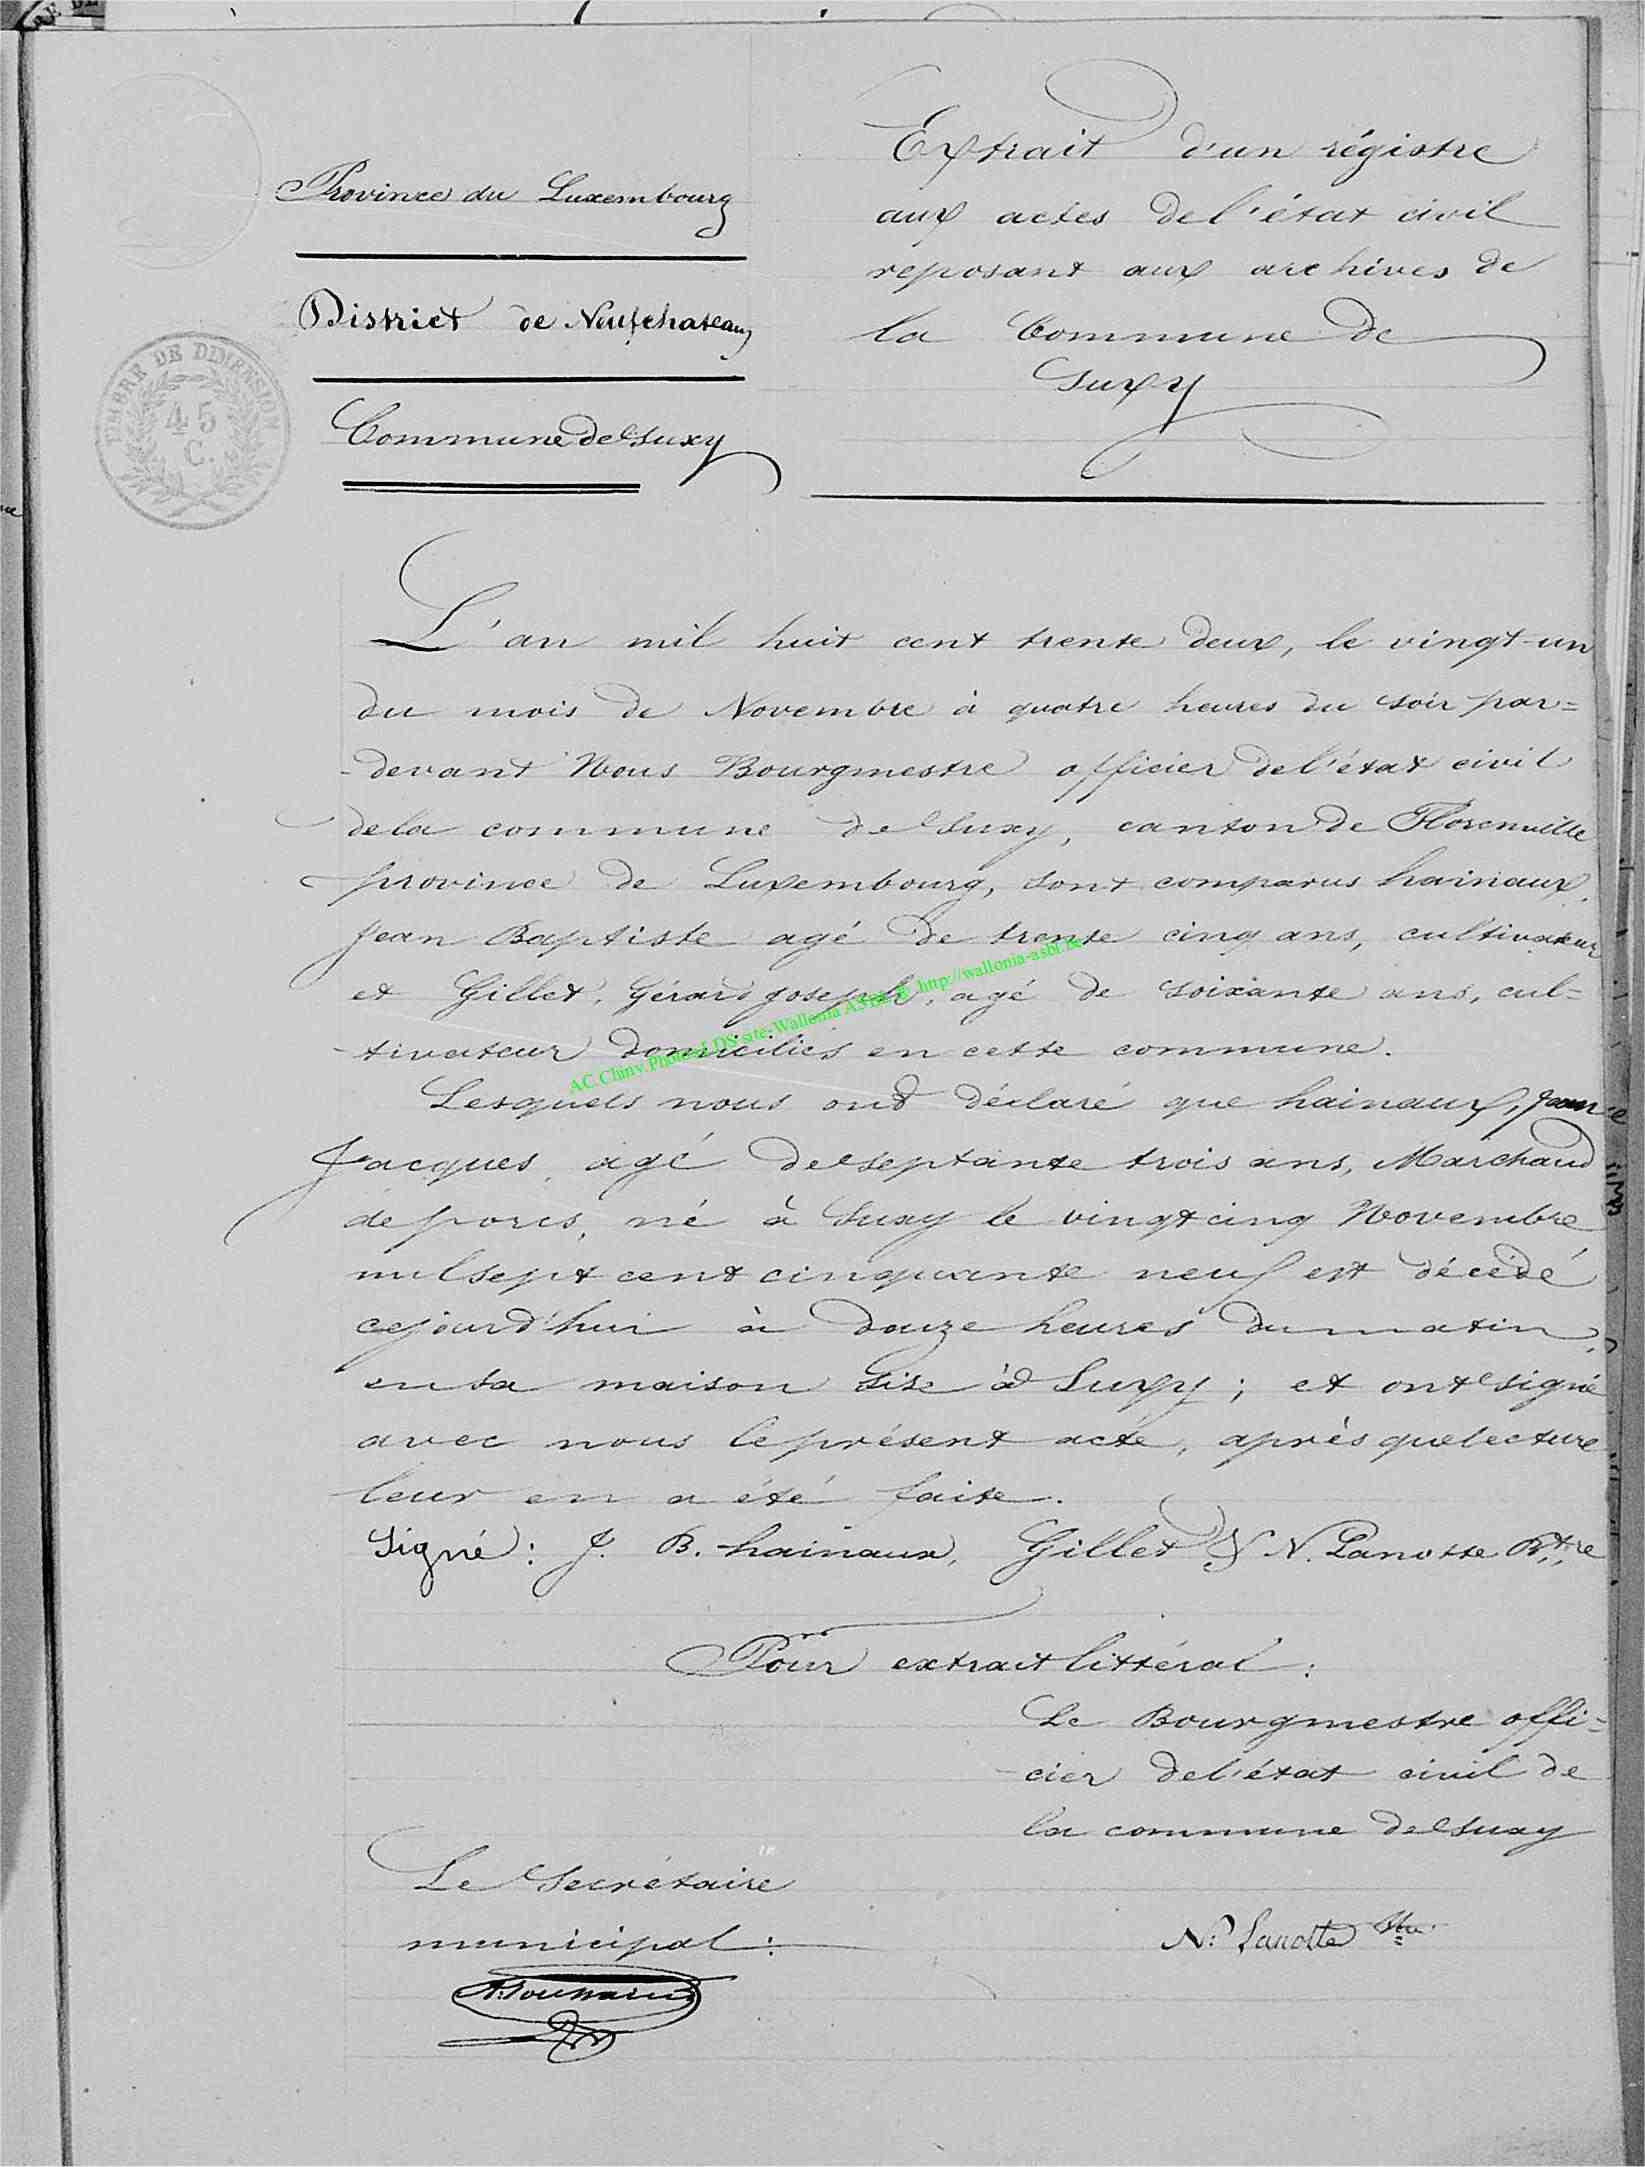 Extrait d'un régistre
aux actes de l'état civil
reposant aux archives de
la Commune de
Suxy
Province du Luxembourg
District de Neufchateau
Commune de Suxy
TIMBRE DE DIMENSION
45
C.
L'an mil huit cent trente deux, le vingt-un
du mois de Novembre à quatre heures du soir par=
-devant Nous Bourgmestre officier de l'état civil
de la commune de Suxy, canton de Florenville
province de Luxembourg, sont comparus hainaux,
Jean Baptiste agé de trente cinq ans, cultivateur
et Gillet, Gérard Joseph, agé de soixante ans, cul=
-tivateur domiciliés en cette commune.
AC.Chiny.Photos LDS site:Wallonia ASBL © http://wallonia-asbl.be
Lesquels nous ont déclaré que hainaux, Jean
Jacques, agé de septante trois ans, Marchand
de porcs, né à Suxy le vingt cinq Novembre
mil sept cent cinquante neuf est décédé
cejourd'hui à douze heures du matin,
en sa maison sise à Suxy ; et ont signé
avec nous le présent acte, après que lecture
leur en a été faite.
Signé : J. B. hainaux, Gillet & N. Lanotte Btre
Pour extrait littéral :
Le Bourgmestre offi=
-cier de l'état civil de
la commune de Suxy
Le Secrétaire
municipal :
N: Lanotte